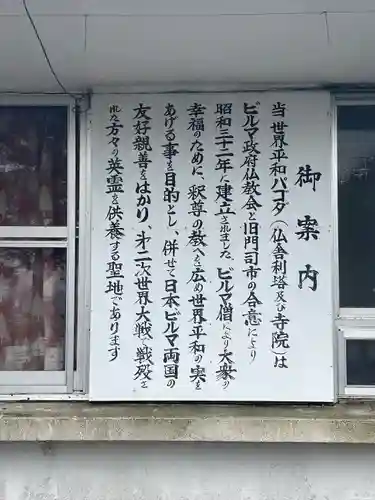 御案内
当世界平和パゴダ(仏舎利塔及び寺院)は
ビルマ政府仏教会と旧門司市の合意により
昭和三十二年に建立されました、ビルマ僧により大衆の
幸福のために、釈尊の教へを広め世界平和の実を
あげる事を目的とし、併せて日本ビルマ両国の
友好親善をはかり、才二次世界大戦で戦歿さ
れた方々の英霊を供養する聖地であります